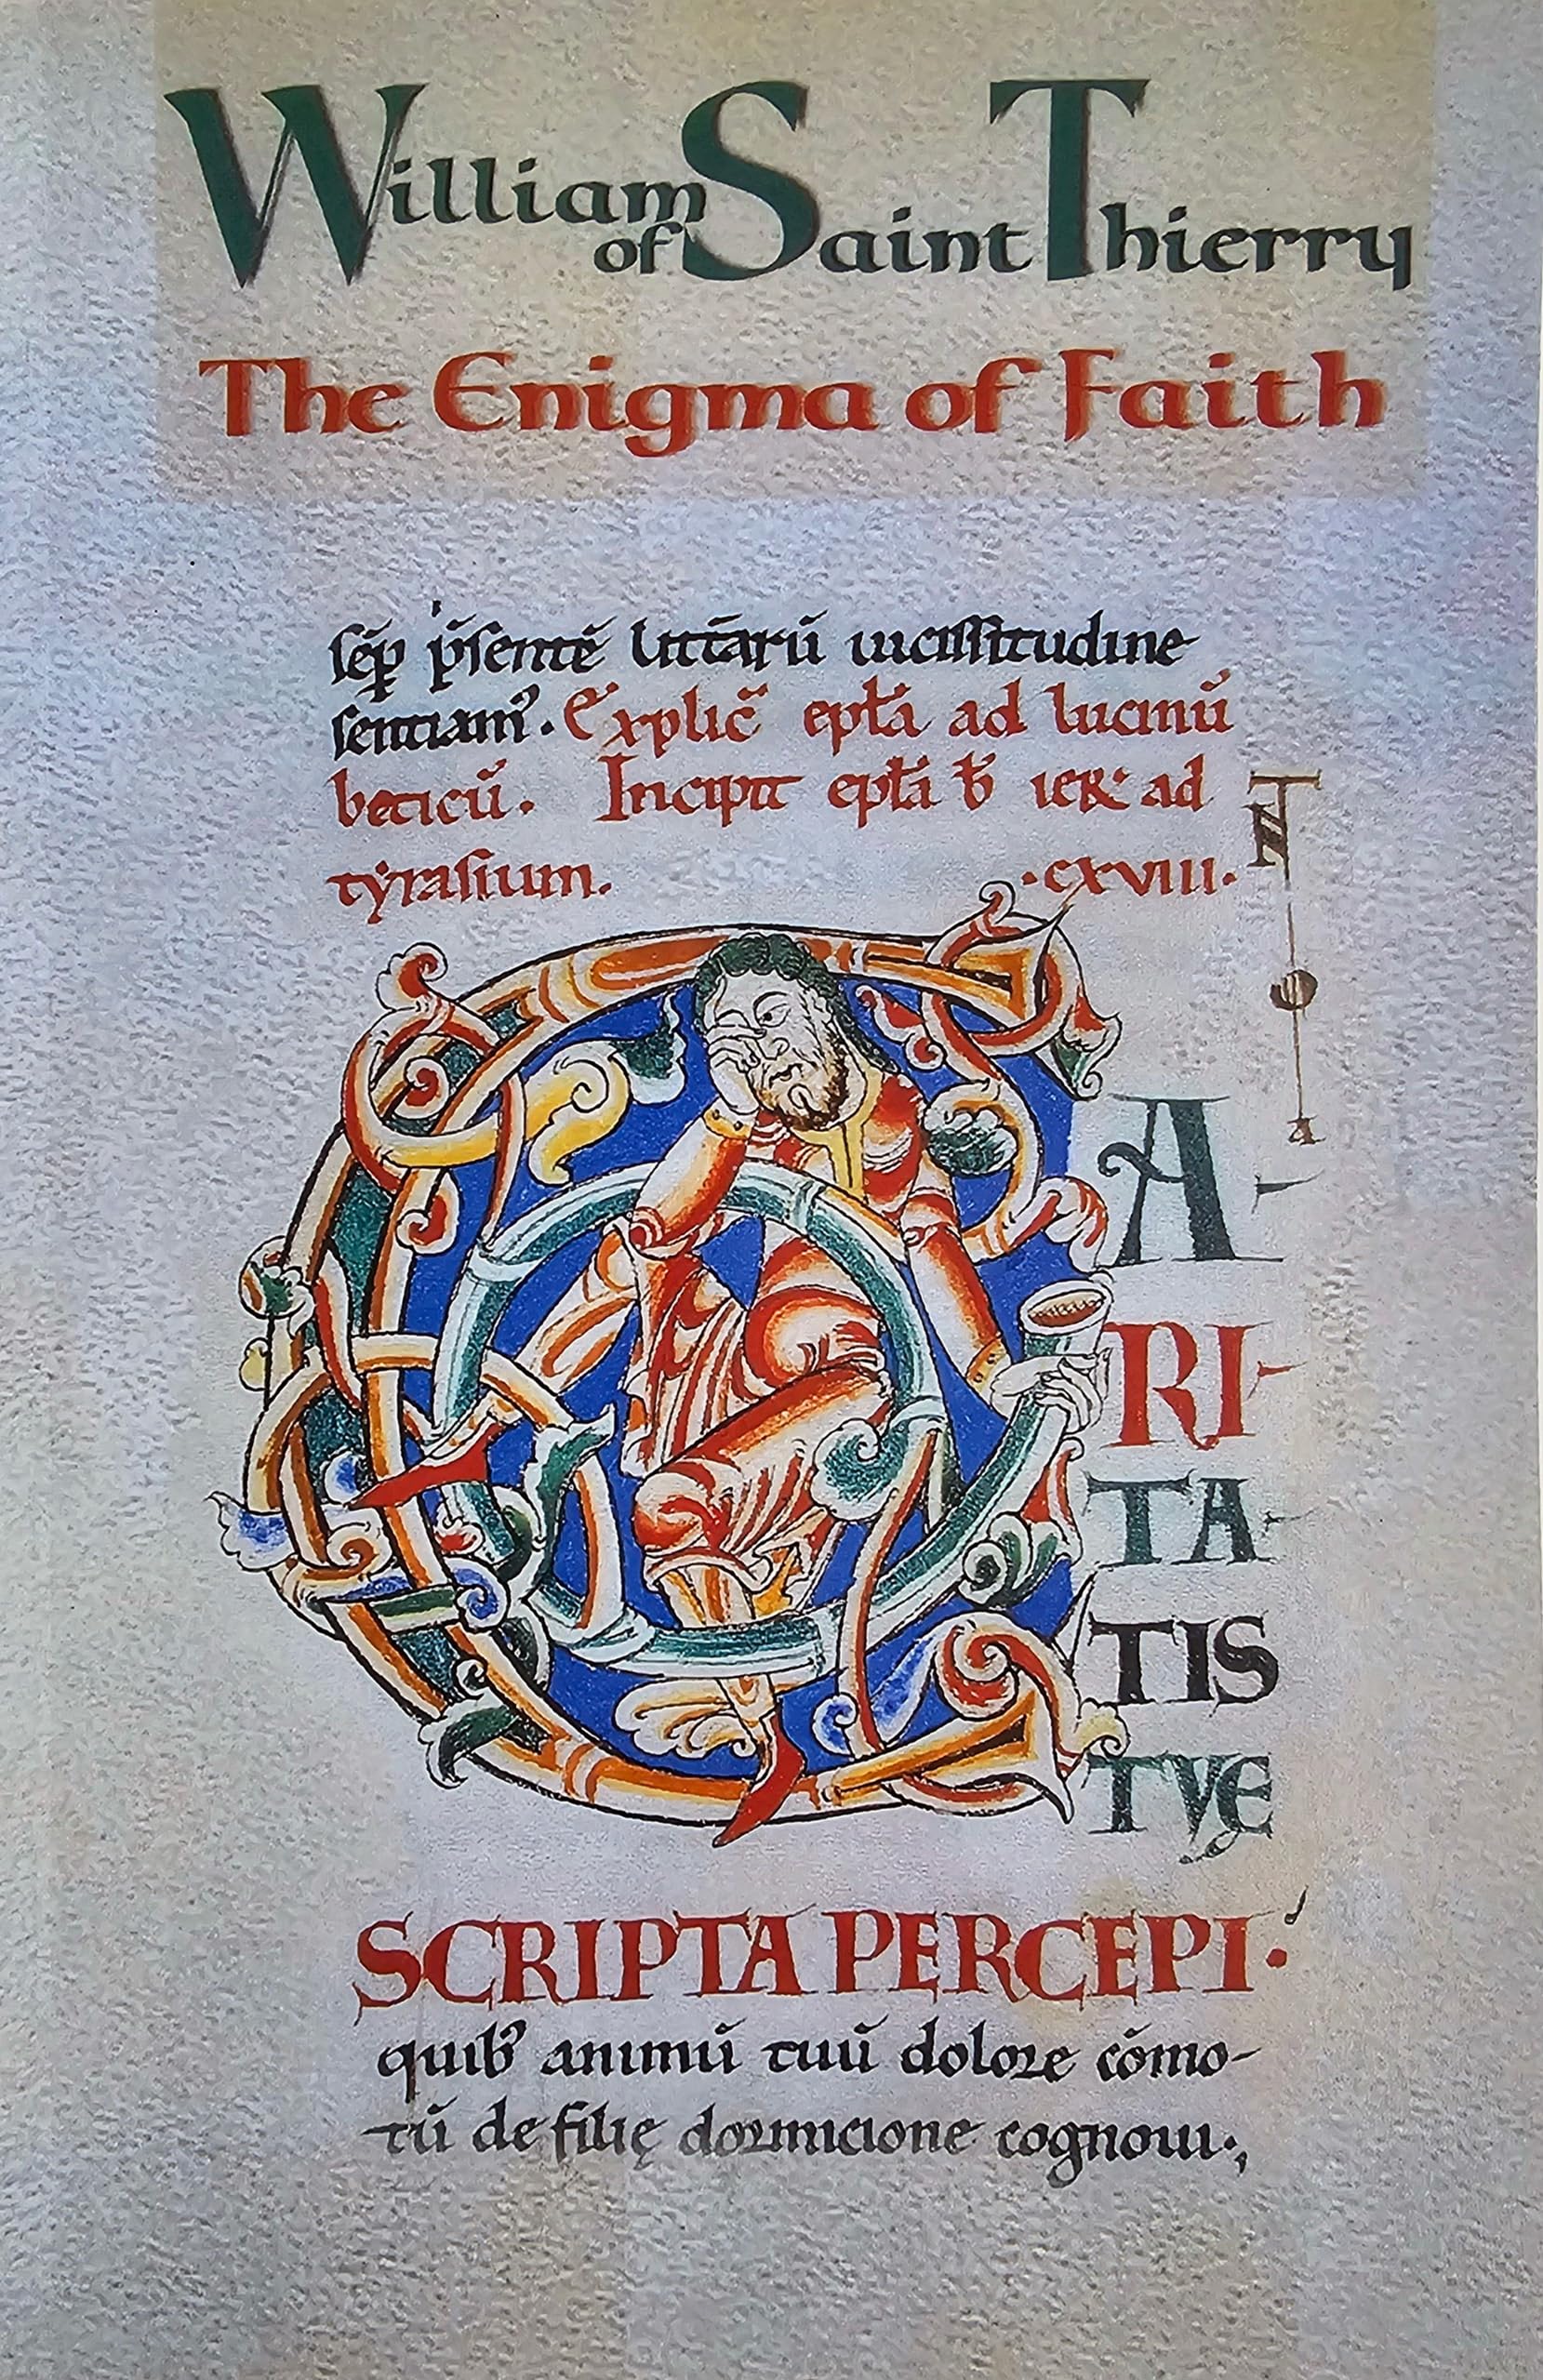 William
of Saint Thierry
The Enigma of Faith
sēp p̄sentē litt̄arū uicissitudine
sentiam᾽. Explic̄ ep̄ła ad lucinū
beticū. Incipit ep̄ła b̄ ier̄ ad
tyrasium. .cxviii.
CA
RI
TA
TIS
TVE
SCRIPTA PERCEPI.
quib᾽ animū tuū dolore cōmo-
tū de filię dormicione cognoui.,